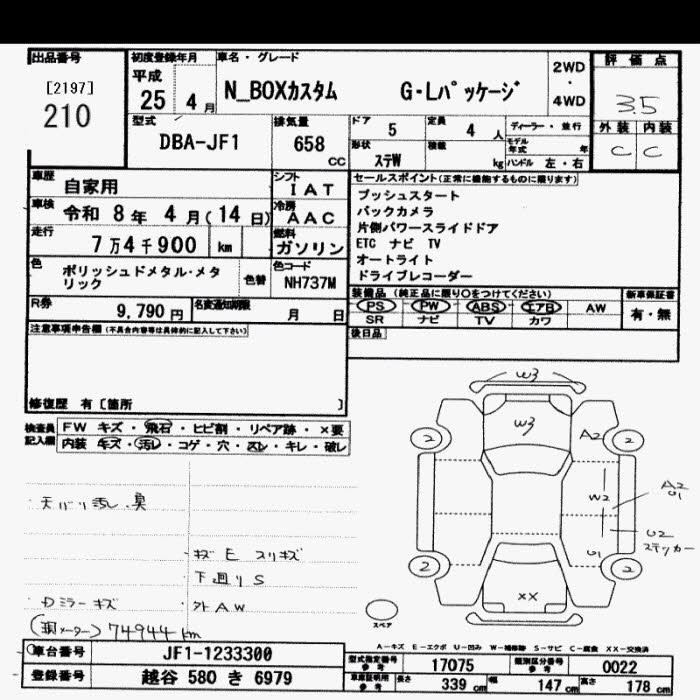 出品番号
[2197]
210
初度登録年月
平成
25年 4月
車名・グレード
N_BOXカスタム G・Lパッケージ
2WD
・
4WD
評価点
3.5
外装 内装
C C
型式
DBA-JF1
排気量
658
CC
ドア 5
定員 4 人
ディーラー・並行
形状 ステW
積載 kg
モデル年式 年
ハンドル 左・右
車歴 自家用
車検 令和 8年 4月(14日)
走行 7万4千900 km
色 ポリッシュドメタル・メタリック
色替
シフト IAT
冷房 AAC
燃料 ガソリン
色コード NH737M
R券 9,790円
名変通知期限 月 日
セールスポイント(正常に機能するものに限ります)
プッシュスタート
バックカメラ
片側パワースライドドア
ETC ナビ TV
オートライト
ドライブレコーダー
装備品(純正品に限り○をつけてください)
PS PW ABS エアB AW
SR ナビ TV カワ
新車保証書
有・無
後日品
注意事項申告欄(不具合内容等は具体的に記入して下さい)
修復歴 有〔箇所 〕
検査員記入欄
FW キズ・飛石・ヒビ割・リペア跡・×要
内装 キズ・汚レ・コゲ・穴・スレ・キレ・破レ
天バリ汚レ、臭
・キズE スリキズ
下廻りS
・Dミラーキズ
・外AW
(調メーター) 74944km
W3
W3
A2
2
2
W2
A2
U1
U2
ステッカー
U1
2
2
XX
スペア
A−キズ E−エクボ U−凹み W−補修跡 S−サビ C−腐食 XX−交換済
車台番号 JF1-1233300
登録番号 越谷 580 き 6979
型式指定番号 参考 17075
類別区分番号 参考 0022
車庫証明用 参考 長さ 339 cm 幅 147 cm 高さ 178 cm